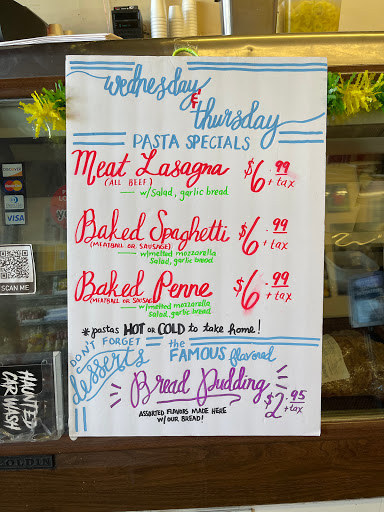 wednesday
&
thursday
PASTA SPECIALS
Meat Lasagna $6.99
(ALL BEEF) + tax
w/Salad, garlic bread
Baked Spaghetti $6.99
(MEATBALL OR SAUSAGE) + tax
w/melted mozzarella
salad, garlic bread
Baked Penne $6.99
(MEATBALL OR SAUSAGE) + tax
w/melted mozzarella
salad, garlic bread
*pastas HOT or COLD to take home!
DON'T FORGET
desserts
the
FAMOUS flavored
Bread Pudding $2.95
+ tax
ASSORTED FLAVORS MADE HERE
W/OUR BREAD!
DISCOVER
VISA
SCAN ME
HAUNTED
CAR WASH